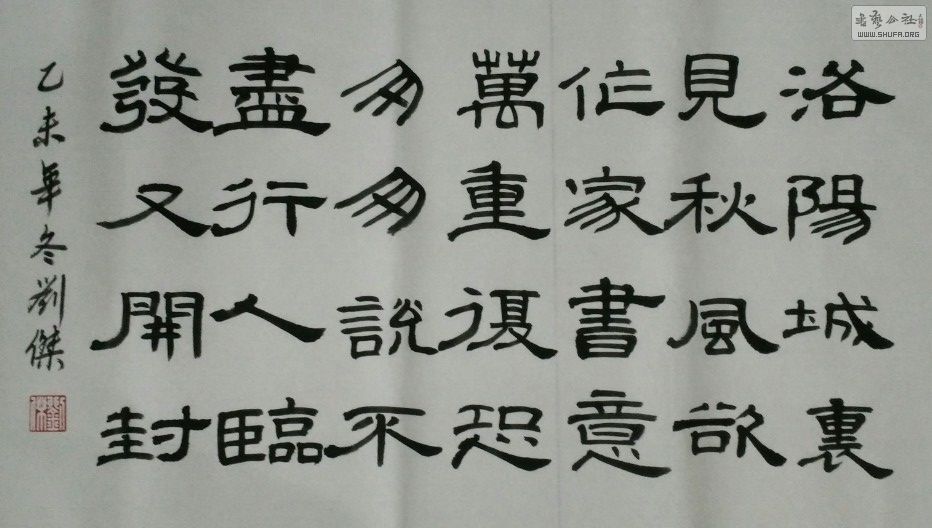 洛陽城裏
見秋風欲
作家書意
萬重復恐
匆匆說不
盡行人臨
發又開封
乙未年冬劉傑
書藝公社
WWW.SHUFA.ORG